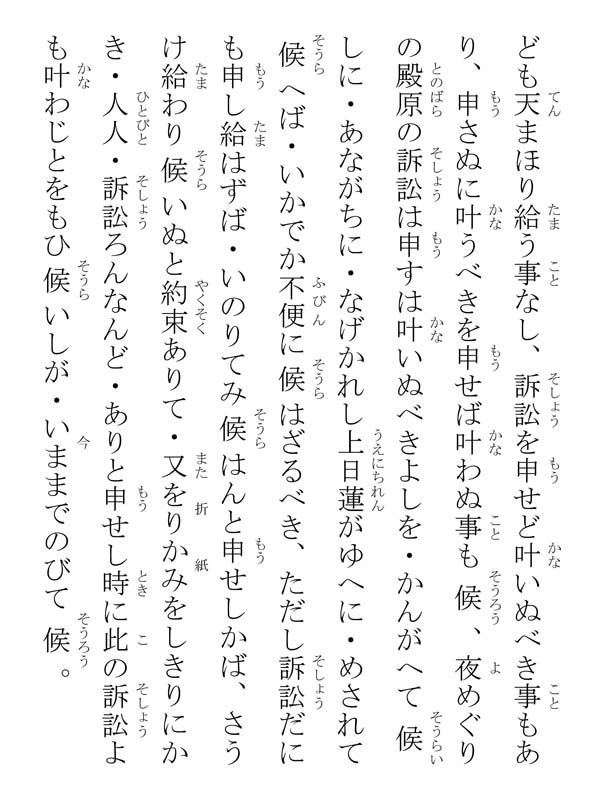 ども天まほり給う事なし、訴訟を申せど叶いぬべき事もあ
り、申さぬに叶うべきを申せば叶わぬ事も候、夜めぐり
の殿原の訴訟は申すは叶いぬべきよしを・かんがへて候
しに・あながちに・なげかれし上日蓮がゆへに・めされて
候へば・いかでか不便に候はざるべき、ただし訴訟だに
も申し給はずば・いのりてみ候はんと申せしかば、さう
け給わり候いぬと約束ありて・又をりかみをしきりにか
き・人人・訴訟ろんなんど・ありと申せし時に此の訴訟よ
も叶わじとをもひ候いしが・いままでのびて候。